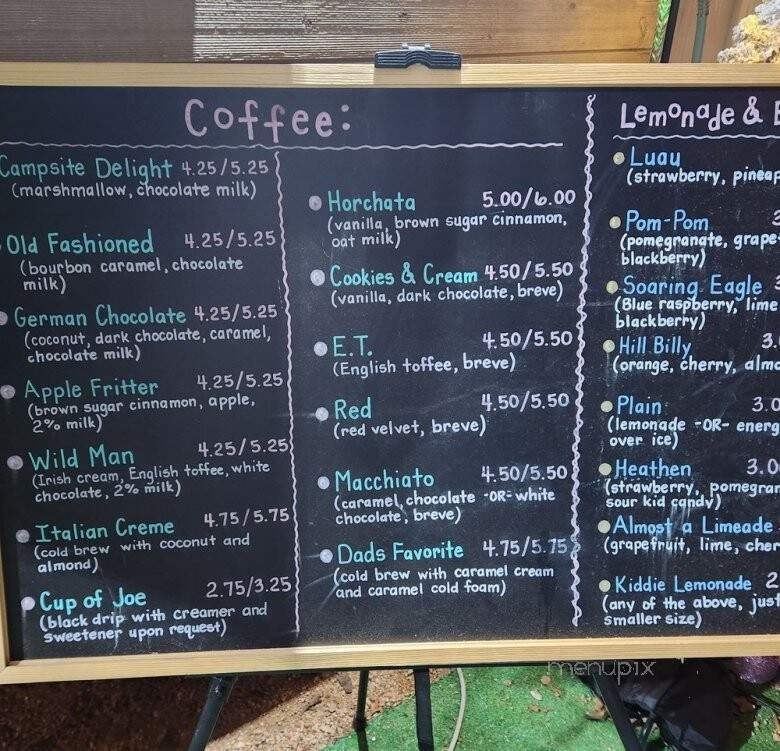 Coffee:
Campsite Delight 4.25/5.25
(marshmallow, chocolate milk)
Old Fashioned 4.25/5.25
(bourbon caramel, chocolate
milk)
German Chocolate 4.25/5.25
(coconut, dark chocolate, caramel,
chocolate milk)
Apple Fritter 4.25/5.25
(brown sugar cinnamon, apple,
2% milk)
Wild Man 4.25/5.25
(Irish cream, English toffee, white
chocolate, 2% milk)
Italian Creme 4.75/5.75
(cold brew with coconut and
almond)
Cup of Joe 2.75/3.25
(black drip with creamer and
sweetener upon request)
Horchata 5.00/6.00
(vanilla, brown sugar cinnamon,
oat milk)
Cookies & Cream 4.50/5.50
(vanilla, dark chocolate, breve)
E.T. 4.50/5.50
(English toffee, breve)
Red 4.50/5.50
(red velvet, breve)
Macchiato 4.50/5.50
(caramel, chocolate -OR- white
chocolate, breve)
Dads Favorite 4.75/5.75
(cold brew with caramel cream
and caramel cold foam)
Lemonade &
Luau
(strawberry,
Pom-Pom
(pomegranate, grape
blackberry)
Soaring Eagle
(Blue raspberry, lime
blackberry)
Hill Billy 3.
(orange, cherry,
Plain 3.0
(lemonade -OR- energ
over ice)
Heathen 3.0
(strawberry,
sour kid candy)
Almost a Limeade
(grapefruit, lime,
Kiddie Lemonade 2
(any of the above, just
smaller size)
menupix